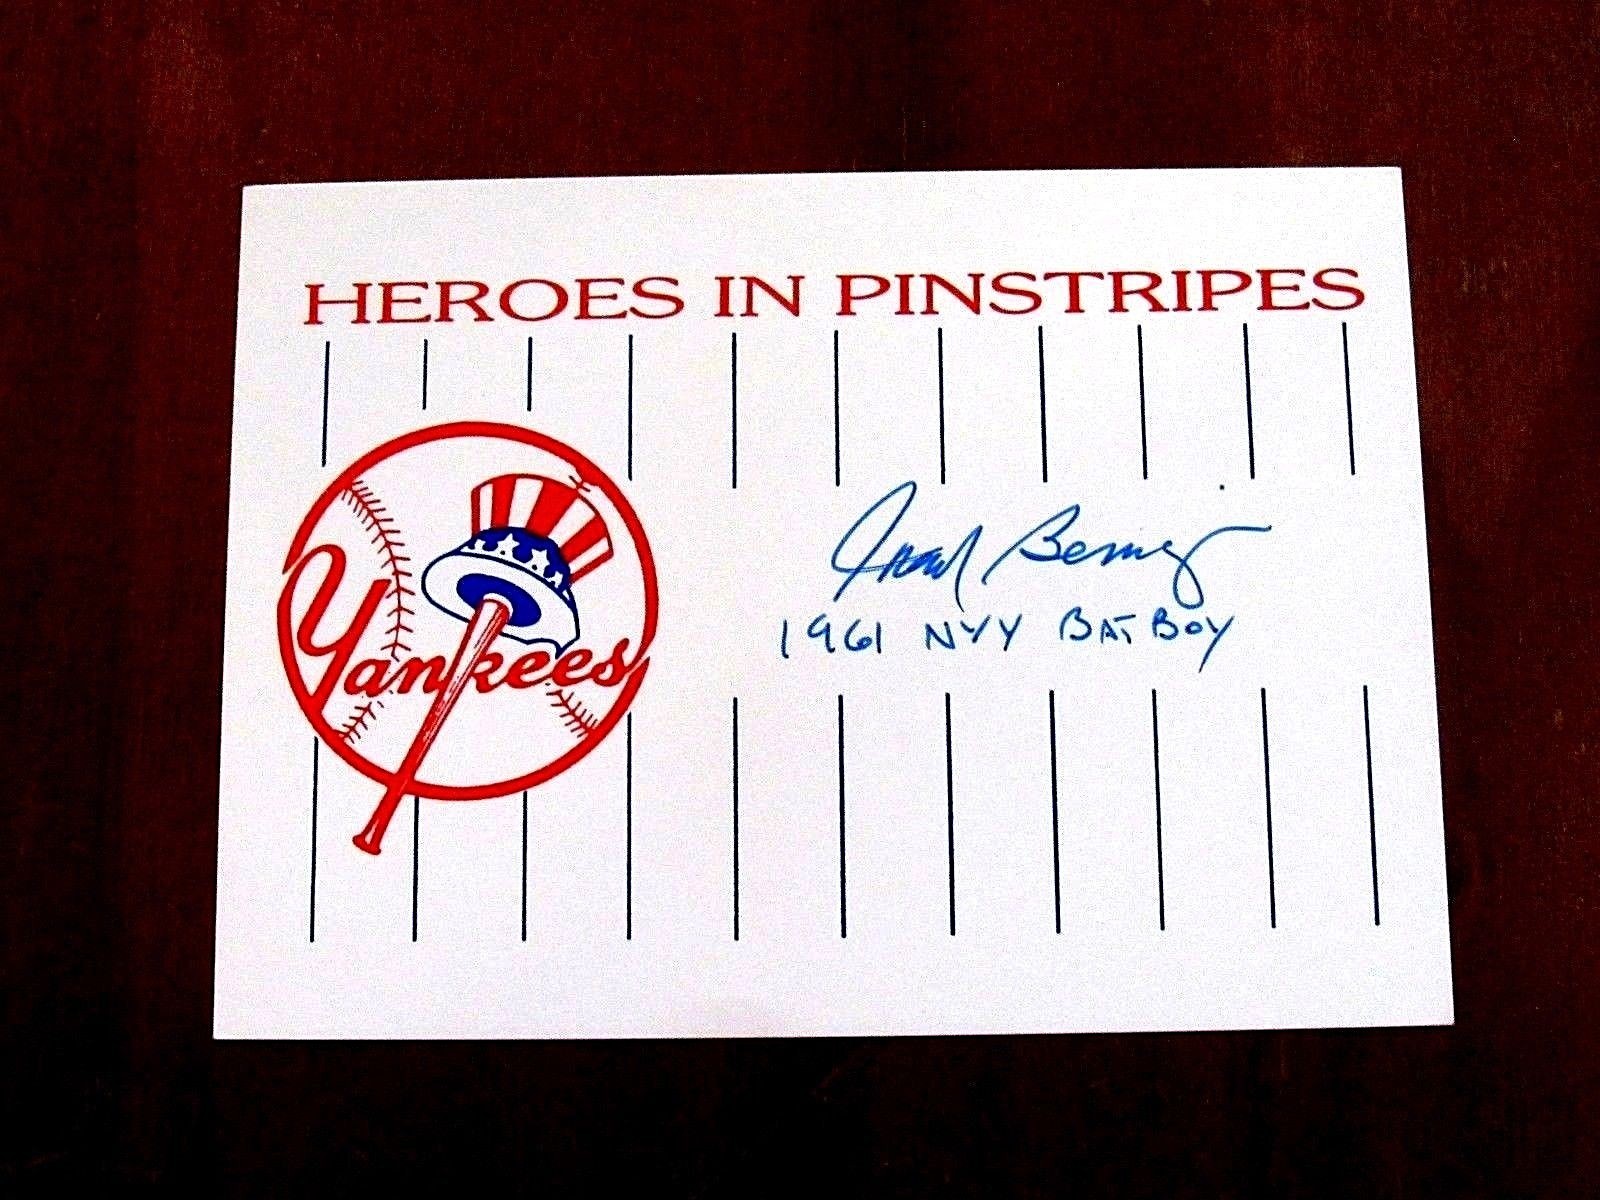 HEROES IN PINSTRIPES
Yankees
Fred Bengis
1961 NYY BAT BOY